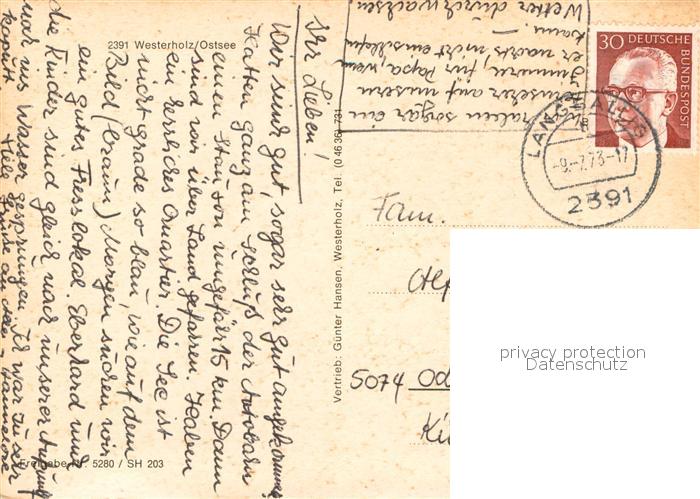 2391 Westerholz/Ostsee
Ihr Lieben!
Wir sind gut, sogar sehr gut angekommen.
Hatten ganz am Schluß der Autobahn
einen Stau von ungefähr 15 km. Dann
sind wir über Land gefahren. Haben
ein herrliches Quartier. Die See ist
nicht grade so blau, wie auf dem
Bild (braun) Morgen suchen wir
ein gutes Fresslokal. Eberhard und
die Kinder sind gleich nach unserer Ankunft
war ins Wasser gesprungen. Ich war zu sehr
kaputt. Viele Grüße an alle, Hannelore
haben sogar ein
Fernseher auf unserem
Zimmer, für Papa, wenn
er nachts nicht einschlafen
kann. —
Wetter durchwachsen
Vertrieb: Günter Hansen, Westerholz, Tel. (0 46 36) 731
Freigabe Nr. 5280 / SH 203
30 DEUTSCHE
BUNDESPOST
LANGBALLIG
-9.-7.73-17
2391
Fam.
5074 Od
privacy protection
Datenschutz